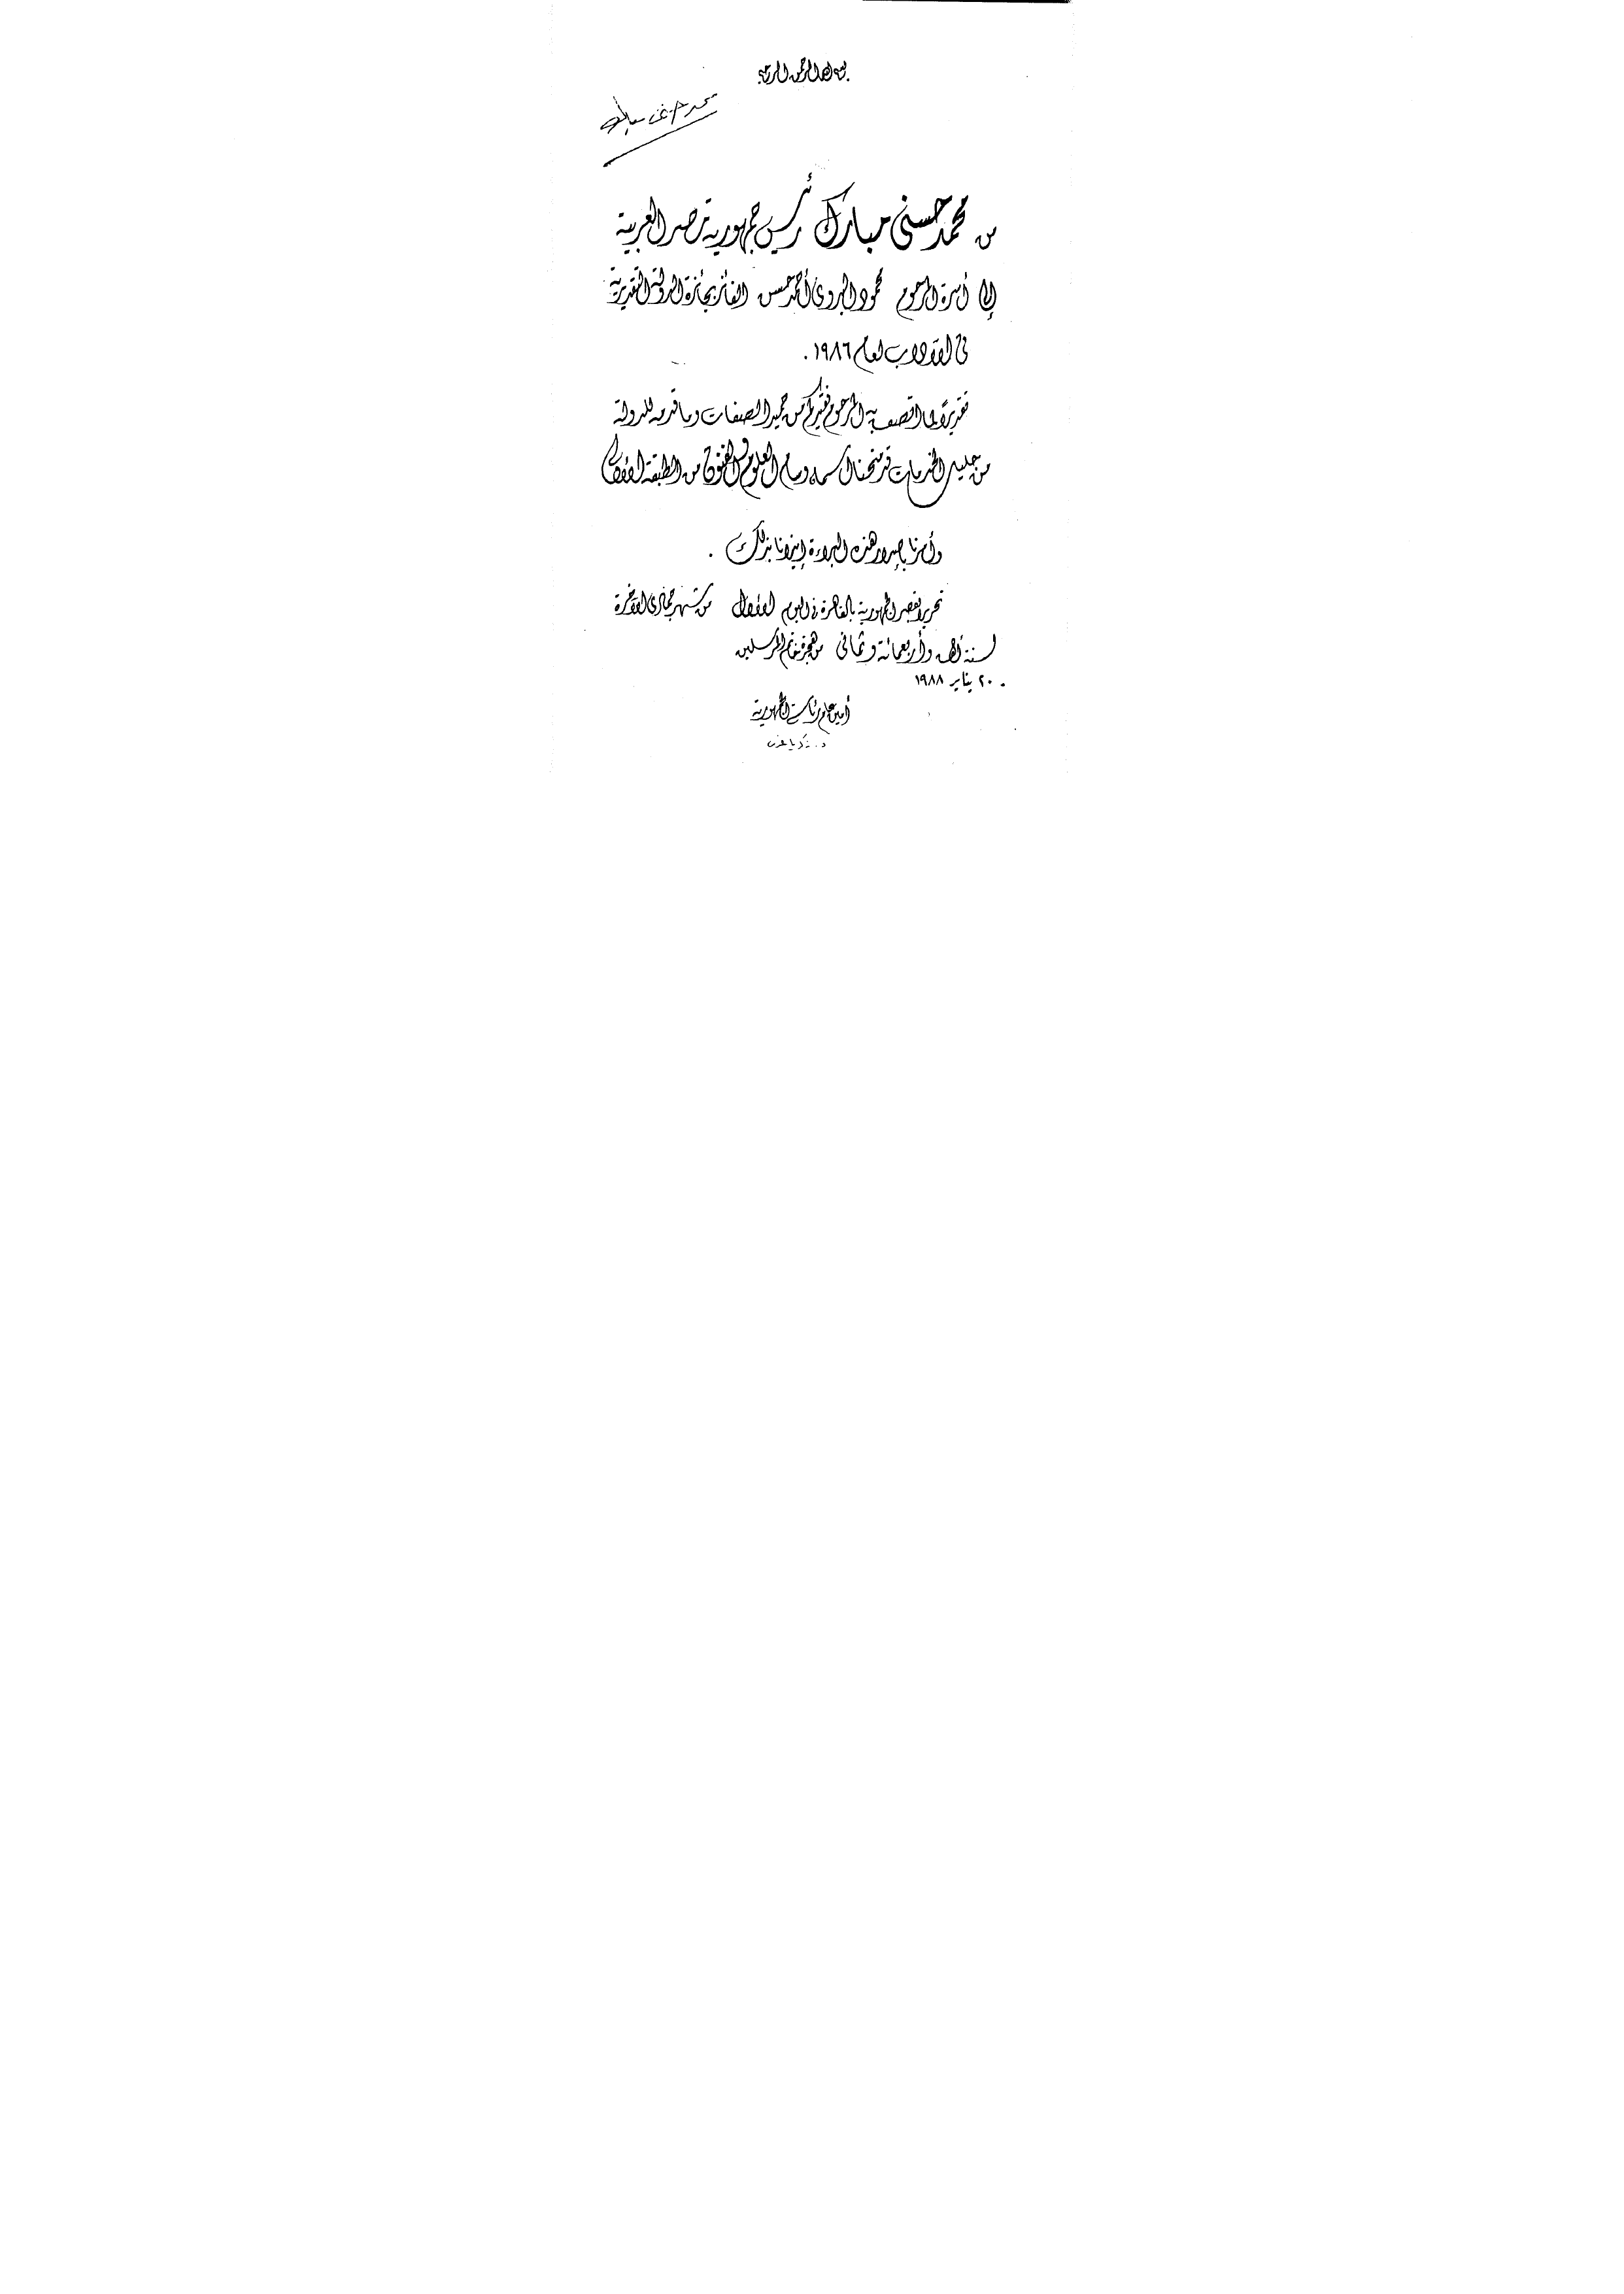 بسم الله الرحمن الرحيم
محمد حسني مبارك
من محمد حسنى مبارك رئيس جمهورية مصر العربية
إلى أسرة المرحوم محمود البدوى أحمد حسن الفائز بجائزة الدولة التقديرية
فى الآداب لعام ١٩٨٦ .
تقديرًا لما اتصف به المرحوم فقيدكم من حميد الصفات وما قدمه للدولة
من جليل الخدمات قد منحنا اسمه وسام العلوم والفنون من الطبقة الأولى
وأمرنا بإصدار هذه البراءة إيذانا بذلك .
تحريرا بقصر الجمهورية بالقاهرة فى اليوم الأول من شهر جمادى الآخرة
لسنة ألف وأربعمائة وثمانى من هجرة خاتم المرسلين
٢٠ يناير ١٩٨٨
أمين عام رئاسة الجمهورية
د. زكريا عزمى